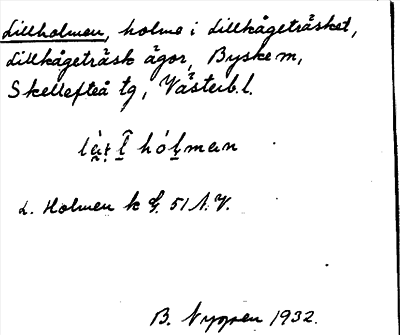 Lillholmen, holme i Lillkågeträsket,
Lillkågeträsk ägor, Byske m,
Skellefteå tg, Västerb. l.
hólman
L. Holmen k 51 N.V.
B. Nyman 1932.